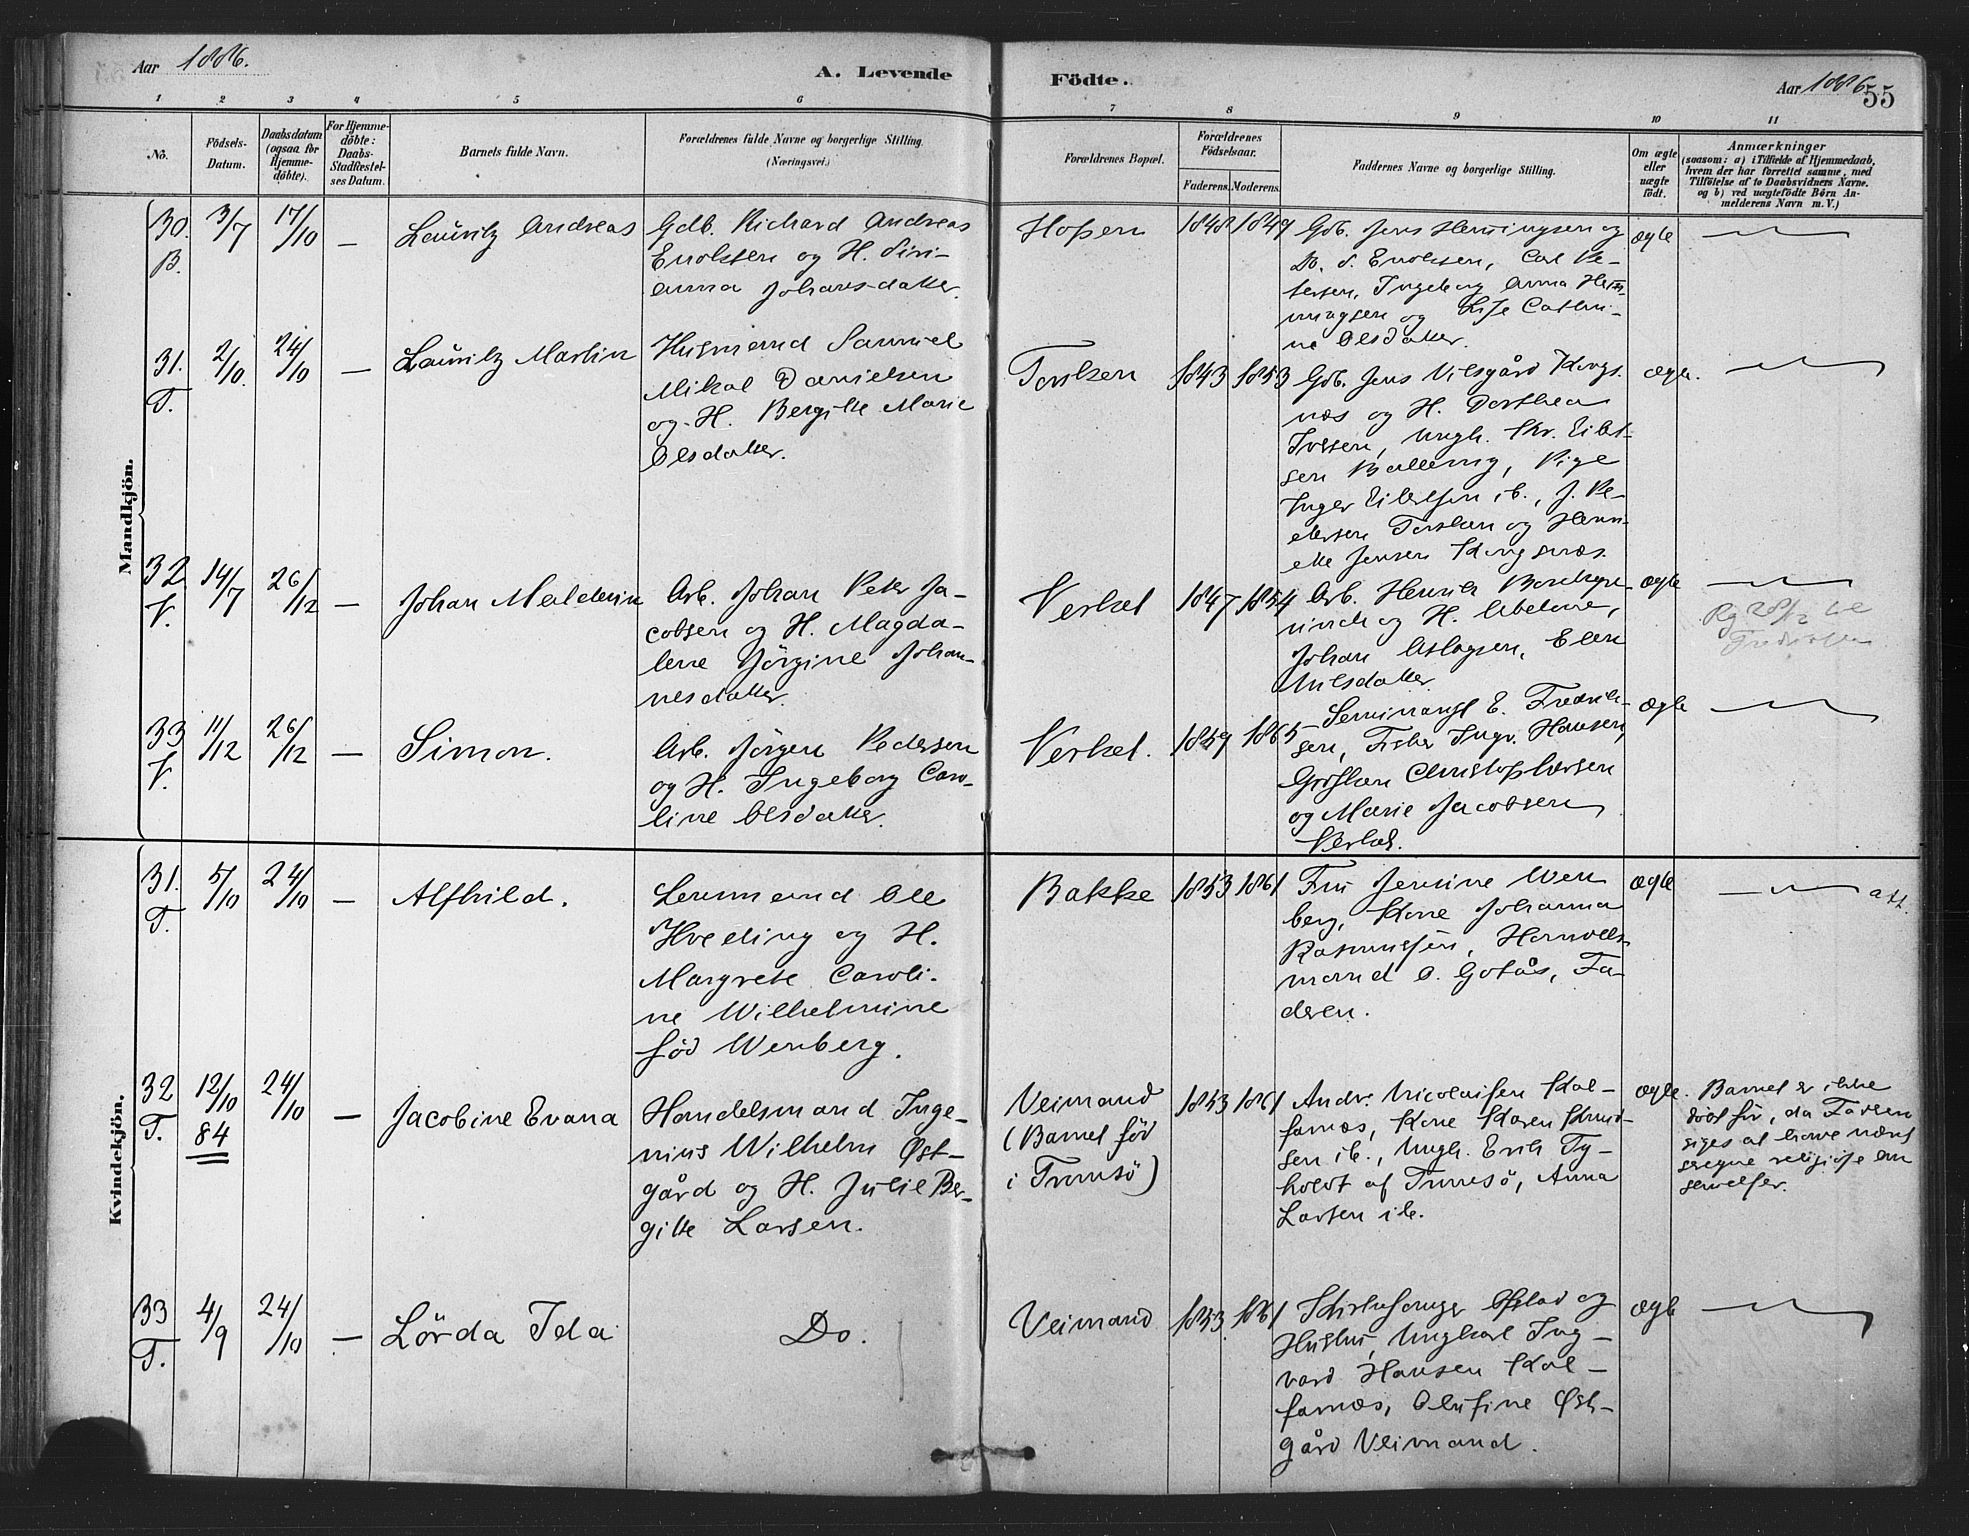 Aar 1886.
A. Levende Födte.
Aar 1886.
55
1 2 3 4 5 6 7 8 9 10 11
No.
Födsels-
Datum.
Daabsdatum
(ogsaa for
Hjemme-
döbte).
For Hjemme-
döbte:
Daabs-
Stadfestel-
ses Datum.
Barnets fulde Navn.
Forældrenes fulde Navne og borgerlige Stilling.
(Næringsvei.)
Forældrenes Bopæl.
Forældrenes
Födselsaar.
Faderens. Moderens.
Faddernes Navne og borgerlige Stilling.
Om ægte
eller
uægte
födt.
Anmærkninger
(saasom: a) i Tilfælde af Hjemmedaab,
hvem der har forrettet samme, med
Tilföielse af to Daabsvidners Navne.
og b) ved uægtefödte Börn An-
melderens Navn m. V.)
Mandkjön.
30.
B.
3/7
17/10
—
Lauritz Andreas
Gdb. Richard Andreas
Enoksen og H. Siri-
anna Johansdatter.
Hofsen
1848 1849
Gdb. Jens Henningsen og
Do. S. Enoksen, Carl Pe-
tersen, Ingeborg Anna Hen-
ningsen og Lise Cathri-
ne Olsdatter.
ægte
31.
T.
2/10.
24/10
—
Lauritz Martin
Husmand Samuel
Mikal Danielsen
og H. Bergitte Marie
Olsdatter.
Torsken
1843 1853
Gdb. Jens Nilsgård Kongs-
næs og H. Dorthea
Iversen, Ungk. Chr. Eilert-
sen Ballering, Pige
Inger Eilertsen ib., J. Pe-
dersen Torsken og Henri-
ette Jensen Kongsnæs.
ægte.
32
V.
14/7
26/12
—
Johan Meldein
Arb. Johan Peter Ja-
cobsen og H. Magda-
lene Jörgine Johan-
nesdatter.
Verket
1847 1854
Arb. Henrik
og H. Abeline,
Johan Aslagsen, Elen
Nilsdatter.
ægte
28/12
33
V.
11/12
26/12
—
Simon.
Arb. Jörgen Pedersen
og H. Ingeborg Caro-
line Olsdatter.
Verket.
1859 1865
Seminarist E. Fredrik-
sen, Fisker Ingv. Hansen,
Christophersen
og Marie Jacobsen
Verket.
ægte
Kvindekjön.
31.
T.
5/10
24/10
—
Alfhild.
Lensmand Ole
Hveding og H.
Margrete Caroli-
ne Wilhelmine
föd Wenberg.
Bakke
1853 1861
Fru Jensine Wen
berg, Kone Johanna
Rasmussen, Handels-
mand O. Gotås, Fa-
deren.
ægte
att.
32
T.
12/10
84
24/10
—
Jacobine Evana
Handelsmand Inge-
nius Wilhelm Øst-
gård og H. Julie Ber-
gitte Larsen.
Veimand
(Barnet föd
i Tromsö)
1853 1861
Andr. Nicolaisen Kal-
farnæs, Kone Karen Knud-
sen ib., Ungk. Erik Ty-
holdt af Tromsö, Anna
Larsen ib.
ægte.
Barnet er ikke
döbt för, da Faderen
siges at have nært
egne religiöse an
skuelser.
33
T.
4/9
24/10
—
Lörda Ida
Do.
Veimand
1853. 1861
Kirkesanger Opstad og
Hustru, Ungkarl Ing-
vard Hansen Kal-
farnæs, Olufine Øst-
gård Veimand.
ægte